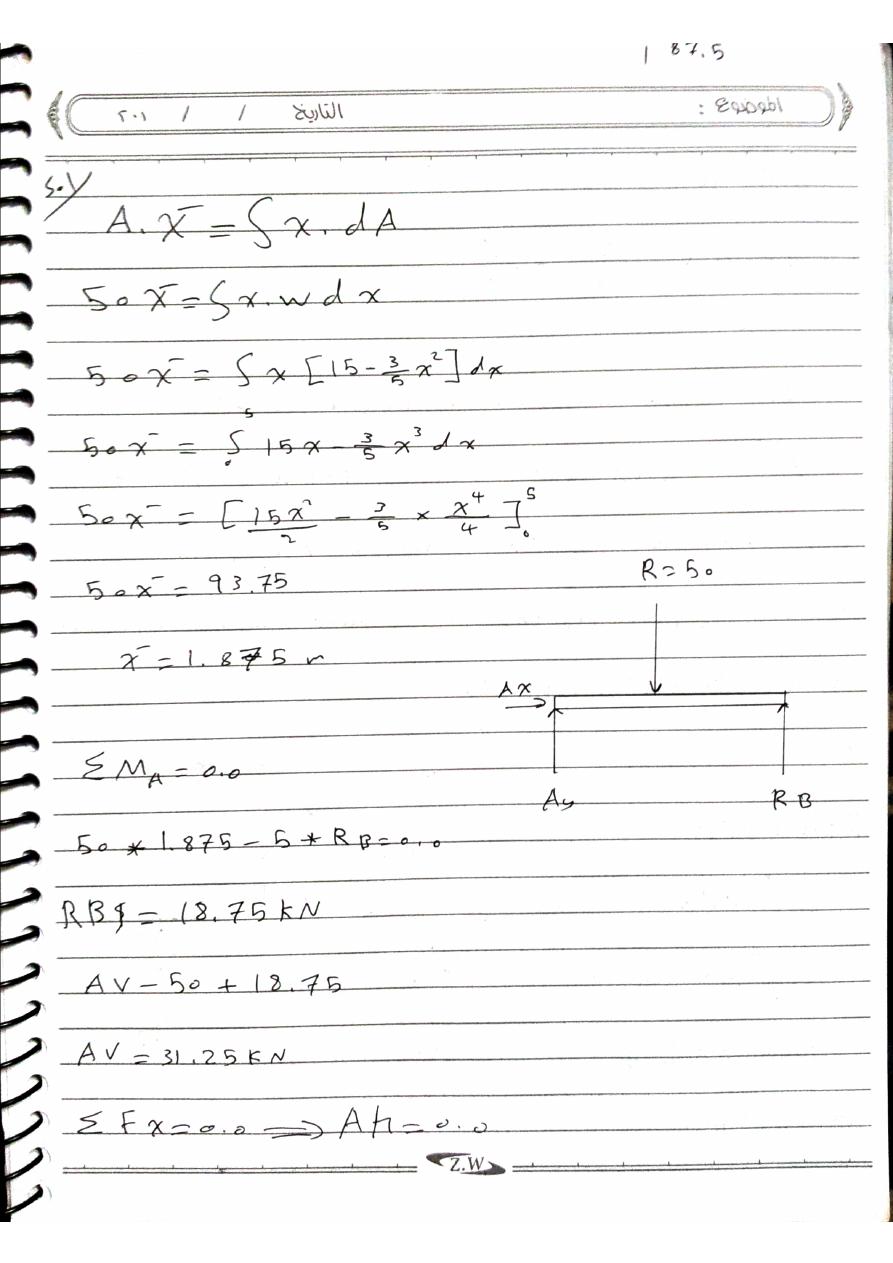 187.5
الموضوع :
التاريخ / / ٢٠١
Sol/
A. x̄ = ∫ x. dA
50 x̄ = ∫ x. w dx
50 x̄ = ∫ x [15 - 3/5 x²] dx
50 x̄ = ∫₀⁵ 15x - 3/5 x³ dx
50 x̄ = [15x²/2 - 3/5 × x⁴/4]₀⁵
50 x̄ = 93.75
R = 50
x̄ = 1.875 m
Ax
Σ M_A = 0.0
Ay
RB
50 * 1.875 - 5 * RB = 0.0
RB = 18.75 KN
AV - 50 + 18.75
AV = 31.25 KN
Σ Fx = 0.0 ⟹ Ah = 0.0
Z.W